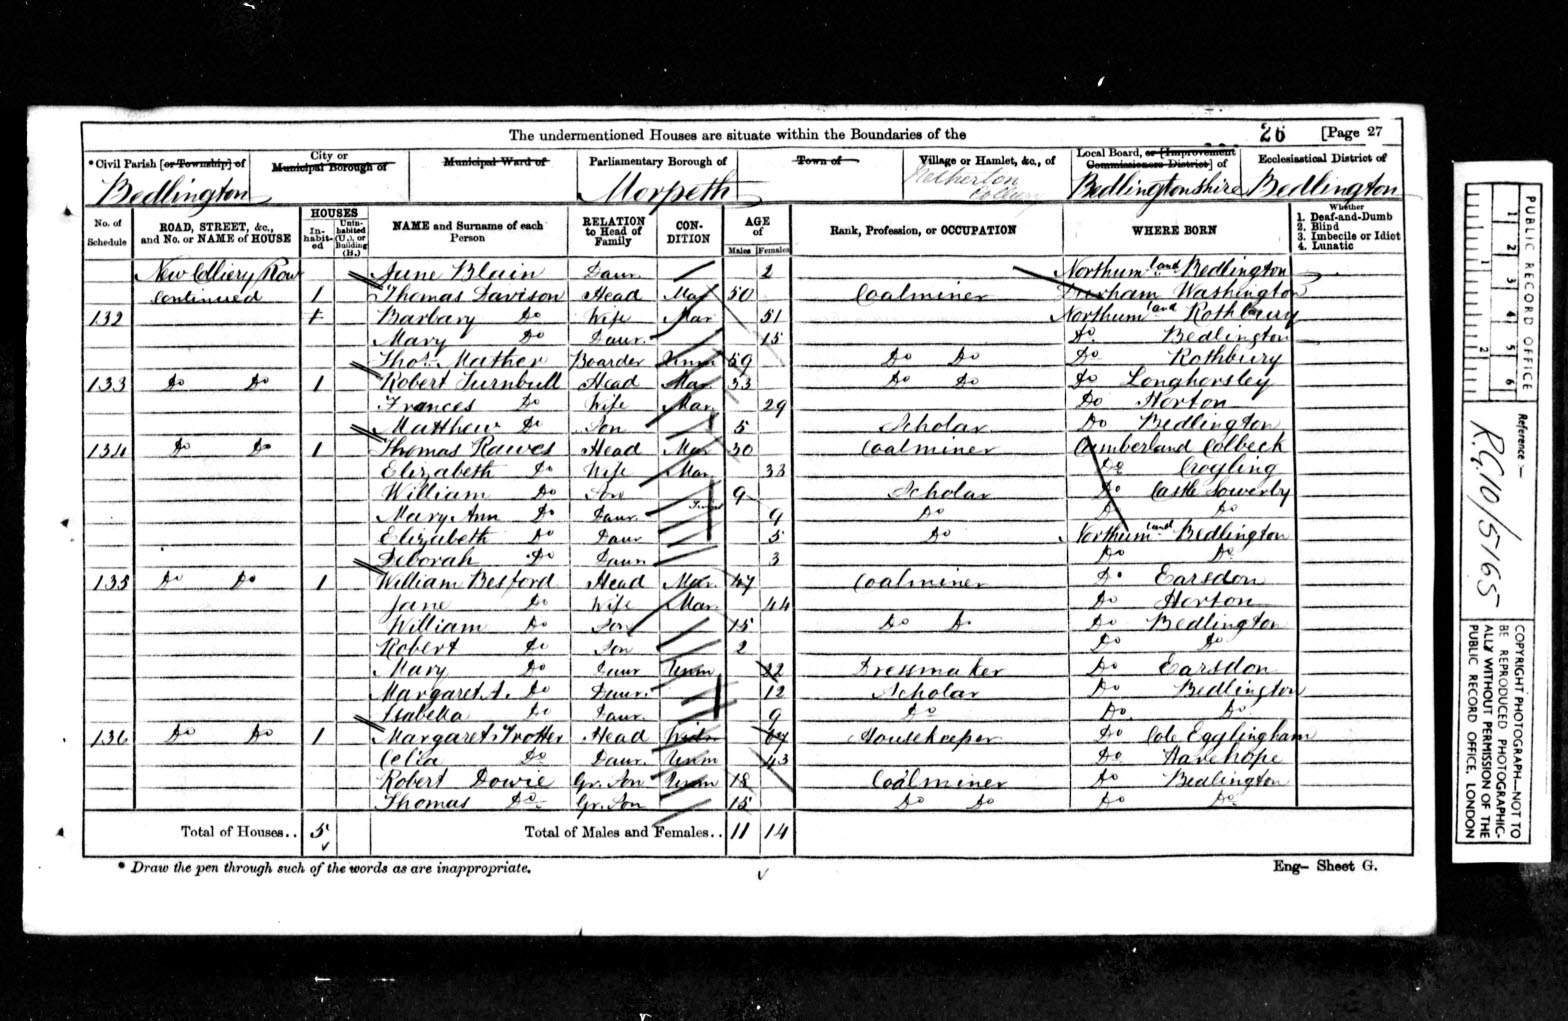 The undermentioned Houses are situate within the Boundaries of the 26 [Page 27
* Civil Parish [or Township] of
Bedlington
City or
Municipal Borough of
Municipal Ward of
Parliamentary Borough of
Morpeth
Town of
Village or Hamlet, &c., of
Netherton
Colliery
Local Board, or [Improvement
Commissioners District] of
Bedlingtonshire
Ecclesiastical District of
Bedlington
No. of
Schedule
ROAD, STREET, &c.,
and No. or NAME of HOUSE
HOUSES
In-
habit-
ed
Unin-
habited
(U.), or
Building
(B.)
NAME and Surname of each
Person
RELATION
to Head of
Family
CON-
DITION
AGE
of
Males Females
Rank, Profession, or OCCUPATION
WHERE BORN
Whether
1. Deaf-and-Dumb
2. Blind
3. Imbecile or Idiot
4. Lunatic
New Colliery Row Blain Daur. 2 Northumland Bedlington
Continued 1 Thomas Davison Head Mar 50 Coalminer Durham Washington
132 Barbary Do Wife Mar 51 Northumland Rothbury
Mary Do Daur. 15 Do Bedlington
Thos. Mather Boarder Unm 59 Do Do Do Rothbury
133 Do Do 1 Robert Turnbull Head Mar 33 Do Do Do Longhorsley
Frances Do Wife Mar 29 Do Horton
Matthew Do Son 5 Scholar Do Bedlington
134 Do Do 1 Thomas Rawes Head Mar 30 Coalminer Cumberland Colbeck
Elizabeth Do Wife Mar 33 Do Croyling
William Do Son 9 Scholar Do Castle Sowerby
Mary Ann Do Daur. 9 Do Do Do
Elizabeth Do Daur 5 Do Northumland Bedlington
Deborah Do Daur 3 Do Do
135 Do Do 1 William Besford Head Mar 47 Coalminer Do Earsdon
Jane Do Wife Mar 44 Do Horton
William Do Son 15 Do Do Do Bedlington
Robert Do Son 2 Do Do
Mary Do Daur Unm 22 Dressmaker Do Earsdon
Margaret A. Do Daur. 12 Scholar Do Bedlington
Isabella Do Daur. 9 Do Do Do
136 Do Do 1 Margaret Trotter Head Widw 67 Housekeeper Do Egylingham
Celia Do Daur. Unm 43 Do Harehope
Robert Dowie Gr. Son Unm 18 Coalminer Do Bedlington
Thomas Do Gr. Son 15 Do Do Do Do
Total of Houses.. 5 Total of Males and Females.. 11 14
* Draw the pen through such of the words as are inappropriate.
Eng- Sheet G.
PUBLIC RECORD OFFICE
1 2 3 4 5 6
1 2
Reference :-
R.G.10/5165
COPYRIGHT PHOTOGRAPH—NOT TO
BE REPRODUCED PHOTOGRAPHIC-
ALLY WITHOUT PERMISSION OF THE
PUBLIC RECORD OFFICE, LONDON